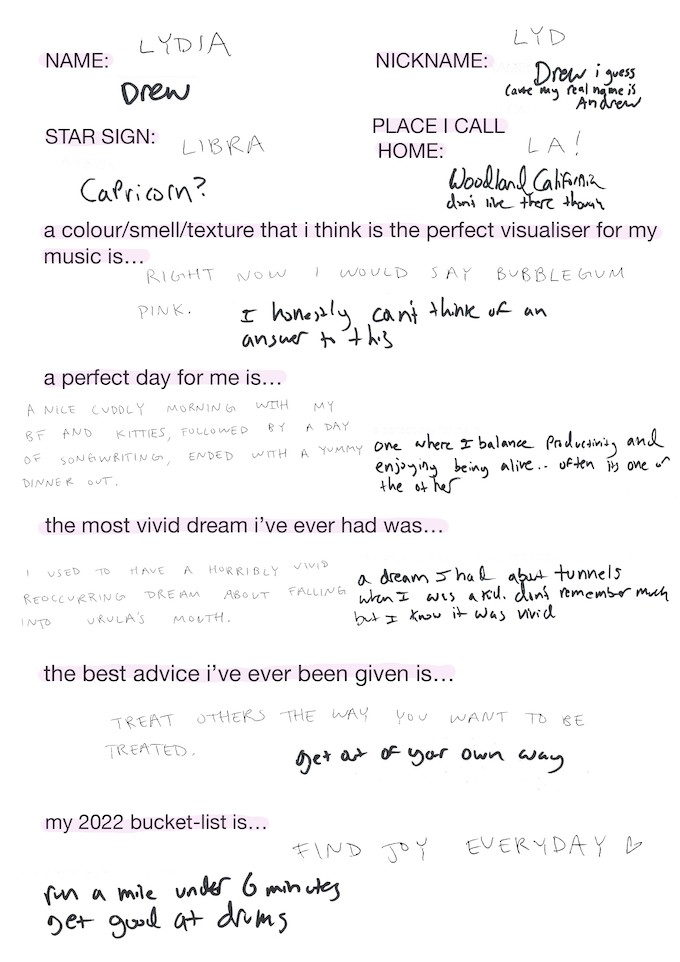 NAME: LYDIA
Drew
NICKNAME: LYD
Drew i guess
cause my real name is
Andrew
STAR SIGN: LIBRA
Capricorn?
PLACE I CALL
HOME: LA!
Woodland California
don't live there though
a colour/smell/texture that i think is the perfect visualiser for my
music is...
RIGHT NOW I WOULD SAY BUBBLEGUM
PINK.
I honestly can't think of an
answer to this
a perfect day for me is...
A NICE CUDDLY MORNING WITH MY
BF AND KITTIES, FOLLOWED BY A DAY
OF SONGWRITING, ENDED WITH A YUMMY
DINNER OUT.
one where I balance productivity and
enjoying being alive.. often its one or
the other
the most vivid dream i've ever had was...
I USED TO HAVE A HORRIBLY VIVID
REOCCURRING DREAM ABOUT FALLING
INTO URULA'S MOUTH.
a dream I had about tunnels
when I was a kid. don't remember much
but I know it was vivid
the best advice i've ever been given is...
TREAT OTHERS THE WAY YOU WANT TO BE
TREATED.
get out of your own way
my 2022 bucket-list is...
FIND JOY EVERYDAY ♡
run a mile under 6 minutes
get good at drums